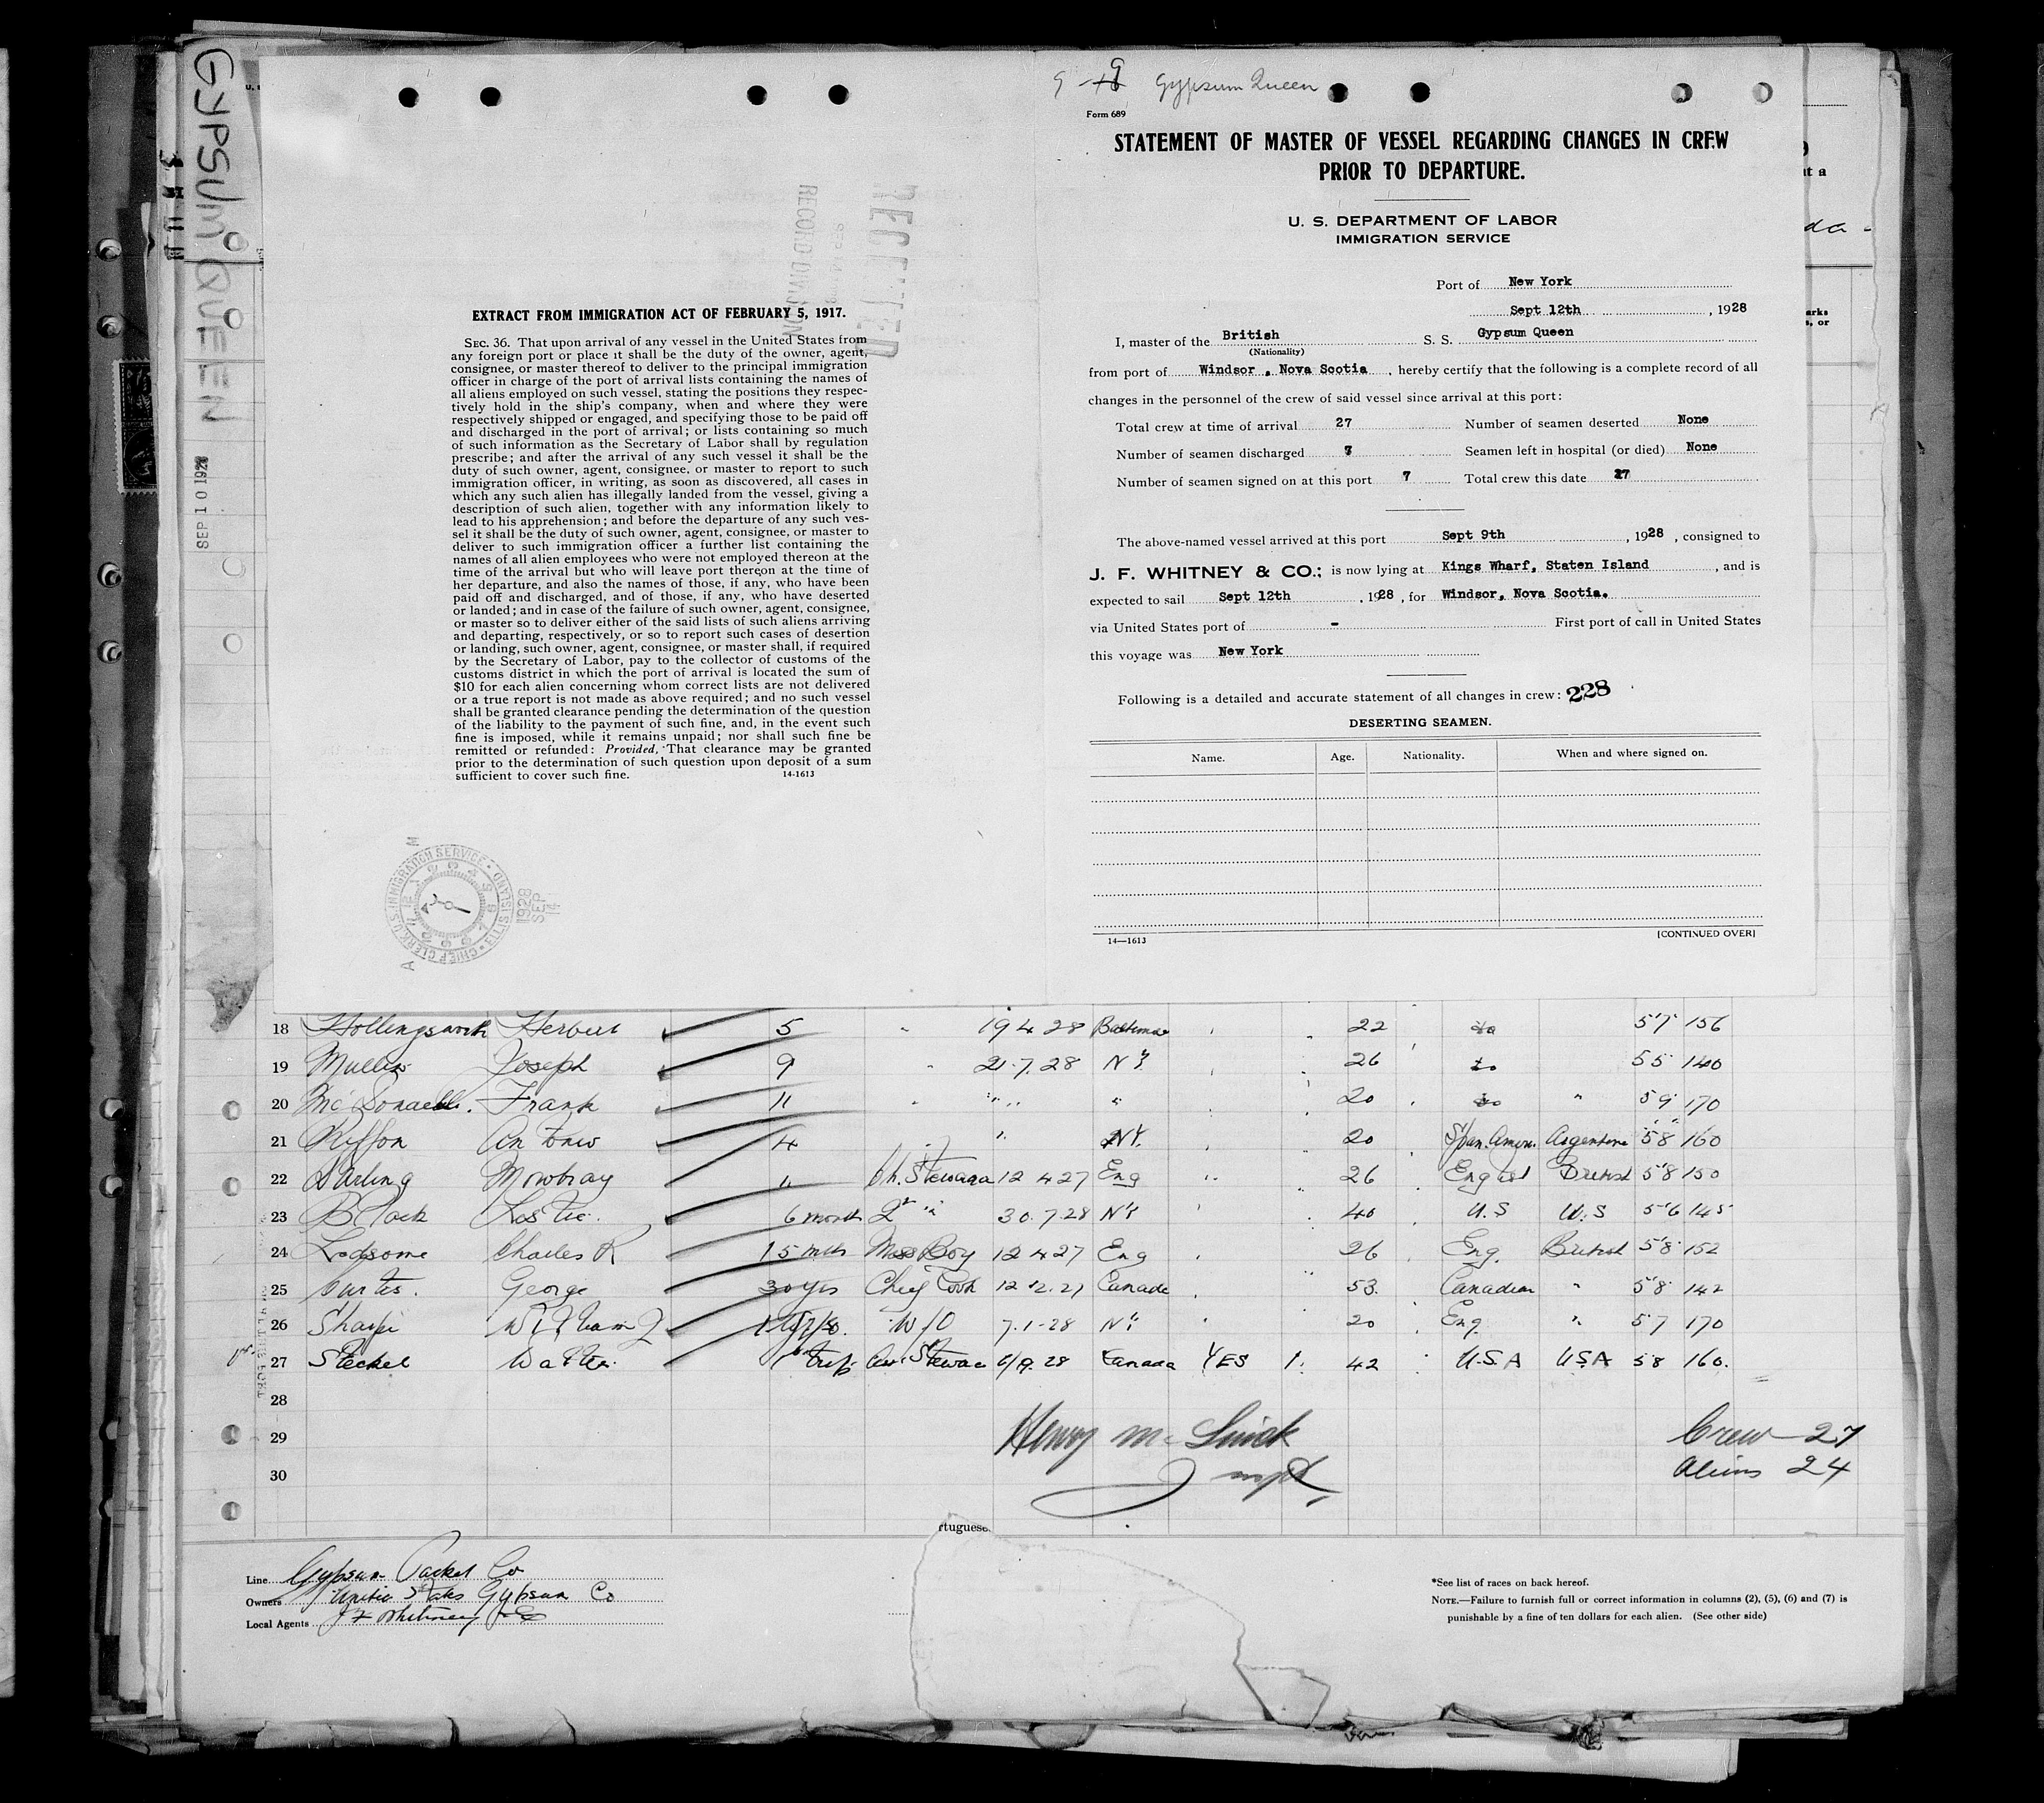 GYPSUM QUEEN
SEP 10 1928
RECORD DIVISION
EXTRACT FROM IMMIGRATION ACT OF FEBRUARY 5, 1917.
SEC. 36. That upon arrival of any vessel in the United States from
any foreign port or place it shall be the duty of the owner, agent,
consignee, or master thereof to deliver to the principal immigration
officer in charge of the port of arrival lists containing the names of
all aliens employed on such vessel, stating the positions they respec-
tively hold in the ship's company, when and where they were
respectively shipped or engaged, and specifying those to be paid off
and discharged in the port of arrival; or lists containing so much
of such information as the Secretary of Labor shall by regulation
prescribe; and after the arrival of any such vessel it shall be the
duty of such owner, agent, consignee, or master to report to such
immigration officer, in writing, as soon as discovered, all cases in
which any such alien has illegally landed from the vessel, giving a
description of such alien, together with any information likely to
lead to his apprehension; and before the departure of any such ves-
sel it shall be the duty of such owner, agent, consignee, or master to
deliver to such immigration officer a further list containing the
names of all alien employees who were not employed thereon at the
time of the arrival but who will leave port thereon at the time of
her departure, and also the names of those, if any, who have been
paid off and discharged, and of those, if any, who have deserted
or landed; and in case of the failure of such owner, agent, consignee,
or master so to deliver either of the said lists of such aliens arriving
and departing, respectively, or so to report such cases of desertion
or landing, such owner, agent, consignee, or master shall, if required
by the Secretary of Labor, pay to the collector of customs of the
customs district in which the port of arrival is located the sum of
$10 for each alien concerning whom correct lists are not delivered
or a true report is not made as above required; and no such vessel
shall be granted clearance pending the determination of the question
of the liability to the payment of such fine, and, in the event such
fine is imposed, while it remains unpaid; nor shall such fine be
remitted or refunded: Provided, That clearance may be granted
prior to the determination of such question upon deposit of a sum
sufficient to cover such fine. 14-1613
CHIEF CLERK U.S. IMMIGRATION SERVICE ELLIS ISLAND
SEP 14 1928
9 Gypsum Queen
Form 689
STATEMENT OF MASTER OF VESSEL REGARDING CHANGES IN CREW
PRIOR TO DEPARTURE.
U. S. DEPARTMENT OF LABOR
IMMIGRATION SERVICE
Port of New York
Sept 12th, 1928
I, master of the British S. S. Gypsum Queen
(Nationality)
from port of Windsor, Nova Scotia, hereby certify that the following is a complete record of all
changes in the personnel of the crew of said vessel since arrival at this port:
Total crew at time of arrival 27 Number of seamen deserted None
Number of seamen discharged 7 Seamen left in hospital (or died) None
Number of seamen signed on at this port 7 Total crew this date 27
The above-named vessel arrived at this port Sept 9th, 1928, consigned to
J. F. WHITNEY & CO.; is now lying at Kings Wharf, Staten Island, and is
expected to sail Sept 12th, 1928, for Windsor, Nova Scotia.
via United States port of - First port of call in United States
this voyage was New York
Following is a detailed and accurate statement of all changes in crew: 228
DESERTING SEAMEN.
Name. Age. Nationality. When and where signed on.
14—1613 [CONTINUED OVER]
18 Hollingsworth Herbert 5 " 19 4 28 Baltimore 22 do 5'7 156
19 Mullin Joseph 9 " 21.7.28 NY 26 do 55 140
20 McDonald Frank 11 " " " 20 do " 59 170
21 Antonio 4 " " NY. 20 Span. Amer. Argentine 58 160
22 Darling Mowbray " Ch. Steward 12 4 27 Eng 26 English British 5'8 150
23 Black Leslie 6 month 2nd " 30.7.28 NY 40 U.S U.S 5'6 145
24 Ledsome Charles R 15 mths Mess Boy 12 4 27 Eng 26 Eng. British 5'8 152
25 Curtis George 30 yrs Chief Cook 12 12.27 Canada 53. Canadian " 5'8 142
26 Sharpe William J W/O 7-1-28 NY 20 Eng. " 57 170
27 Steckel Walter 1st trip Steward 6/9.28 Canada YES 42 U.S.A USA 58 160.
28
29
30
Crew—27
Aliens 24
rtuguese
Line Gypsum Packet Co
Owners United States Gypsum Co
Local Agents J F Whitney & Co
*See list of races on back hereof.
NOTE.—Failure to furnish full or correct information in columns (2), (5), (6) and (7) is
punishable by a fine of ten dollars for each alien. (See other side)